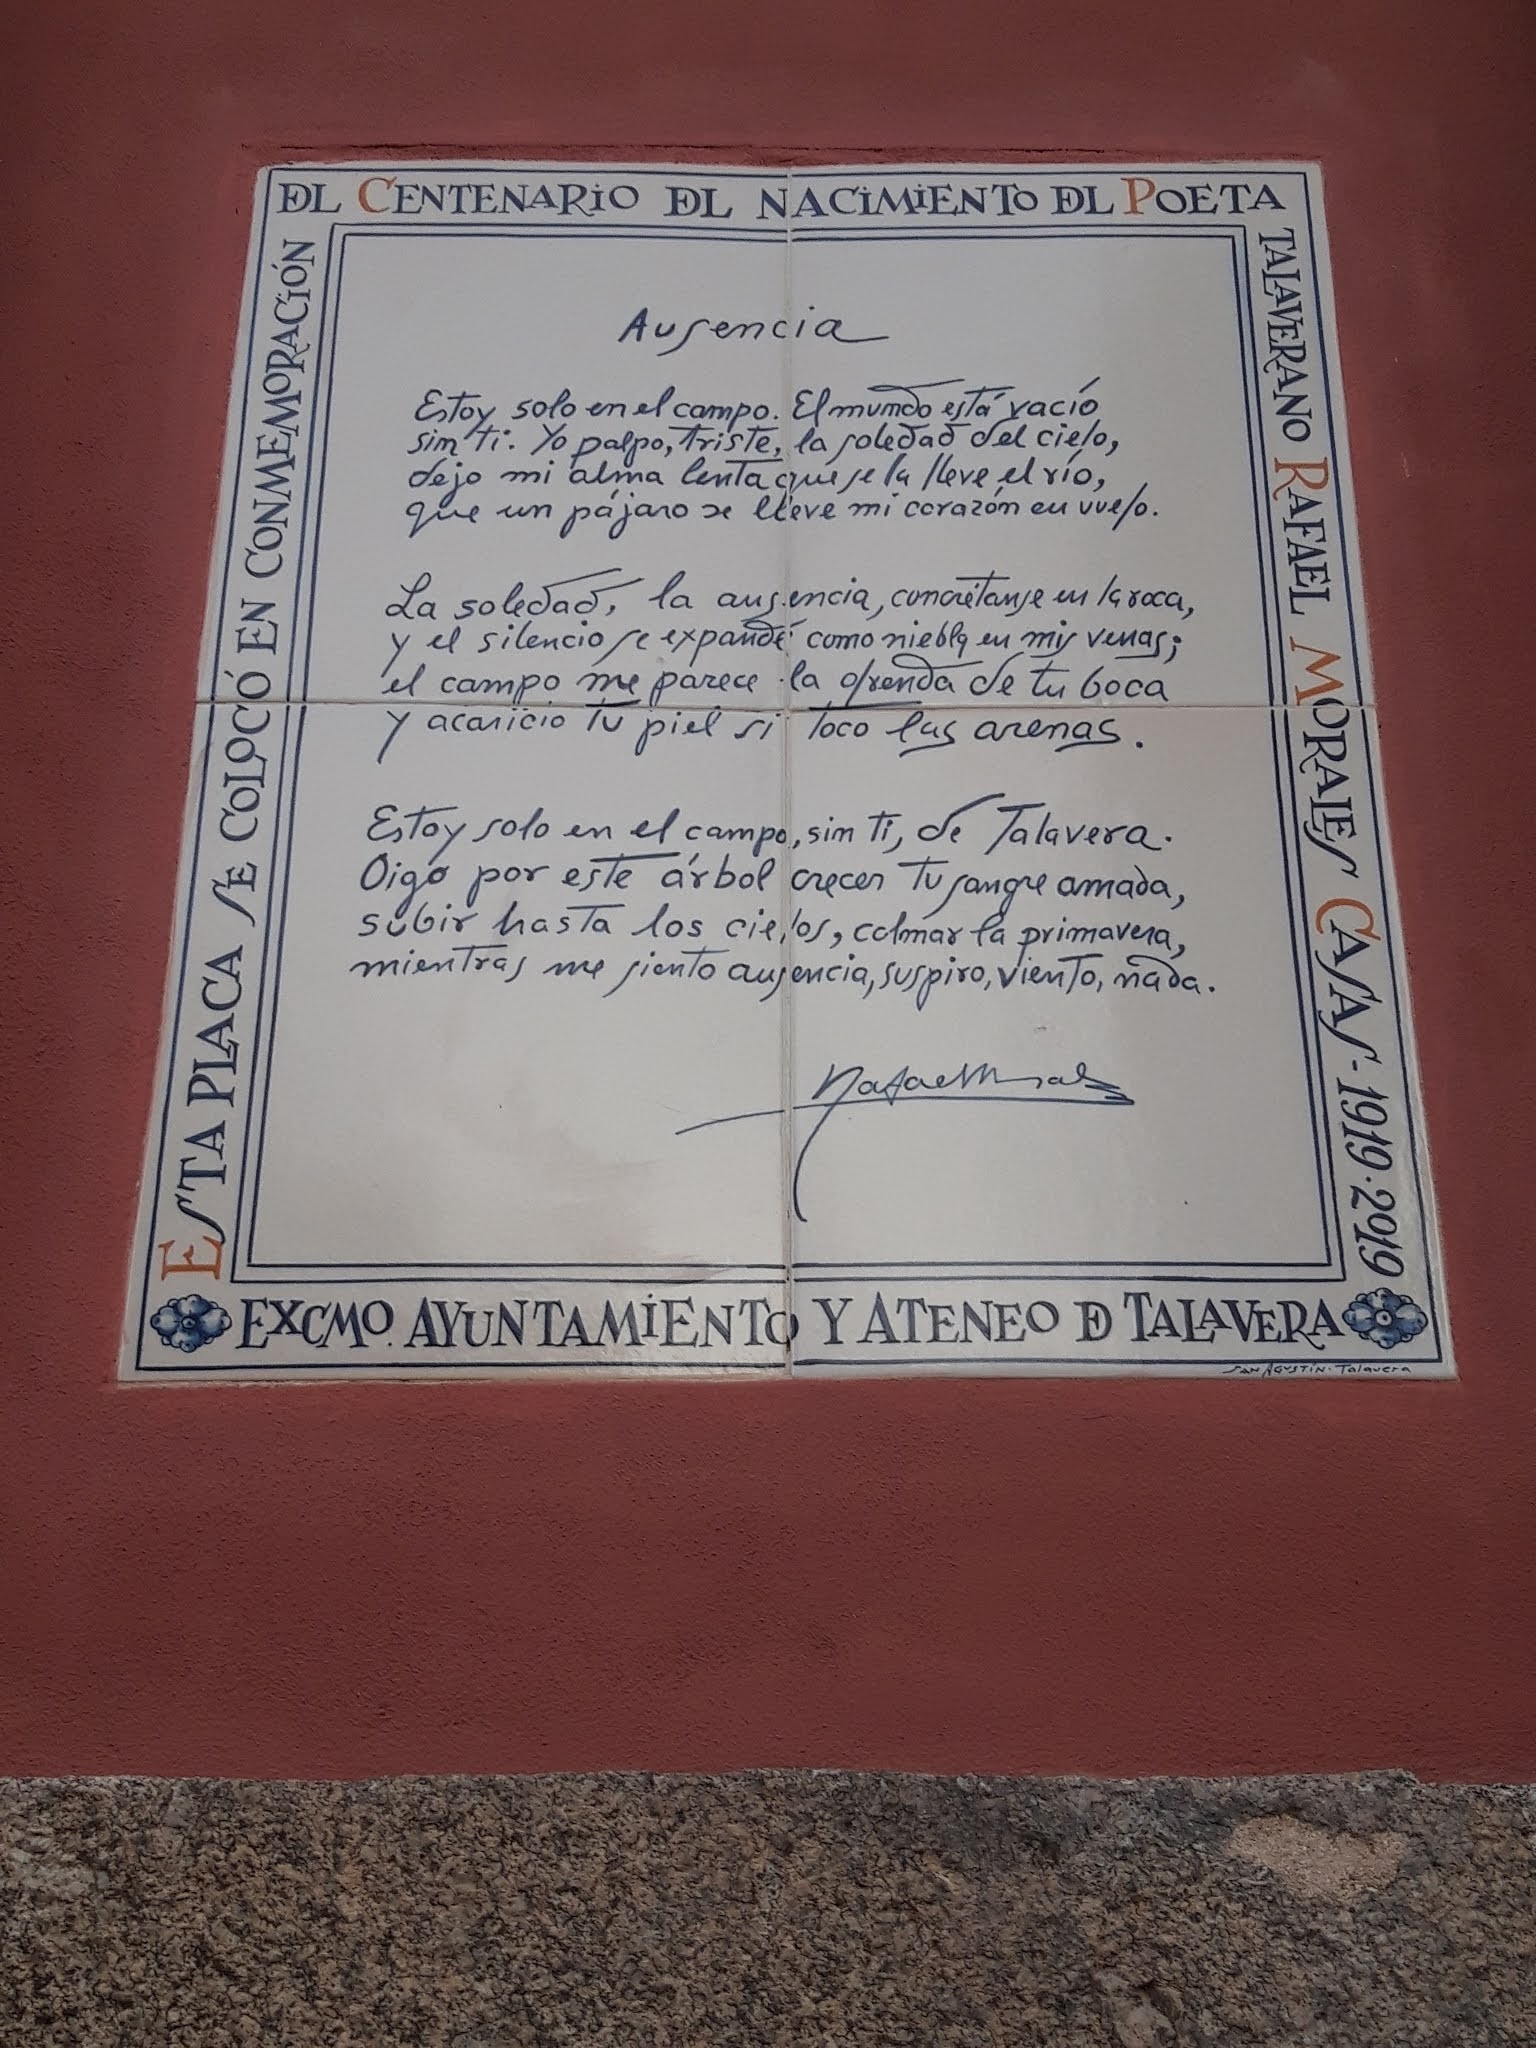 ESTA PLACA SE COLOCÓ EN CONMEMORACIÓN
DEL CENTENARIO DEL NACIMIENTO DEL POETA
TALAVERANO RAFAEL MORALES CASAS - 1919 · 2019
Ausencia
Estoy solo en el campo. El mundo está vacío
sin ti. Yo palpo, triste, la soledad del cielo,
dejo mi alma lenta que se la lleve el río,
que un pájaro se lleve mi corazón en vuelo.
La soledad, la ausencia, concrétanse en la roca,
y el silencio se expande como niebla en mis venas;
el campo me parece la ofrenda de tu boca
y acaricio tu piel si toco las arenas.
Estoy solo en el campo, sin ti, de Talavera.
Oigo por este árbol crecer tu sangre amada,
subir hasta los cielos, colmar la primavera,
mientras me siento ausencia, suspiro, viento, nada.
Rafael Morales
EXCMO. AYUNTAMIENTO Y ATENEO DE TALAVERA
SAN AGUSTÍN · Talavera